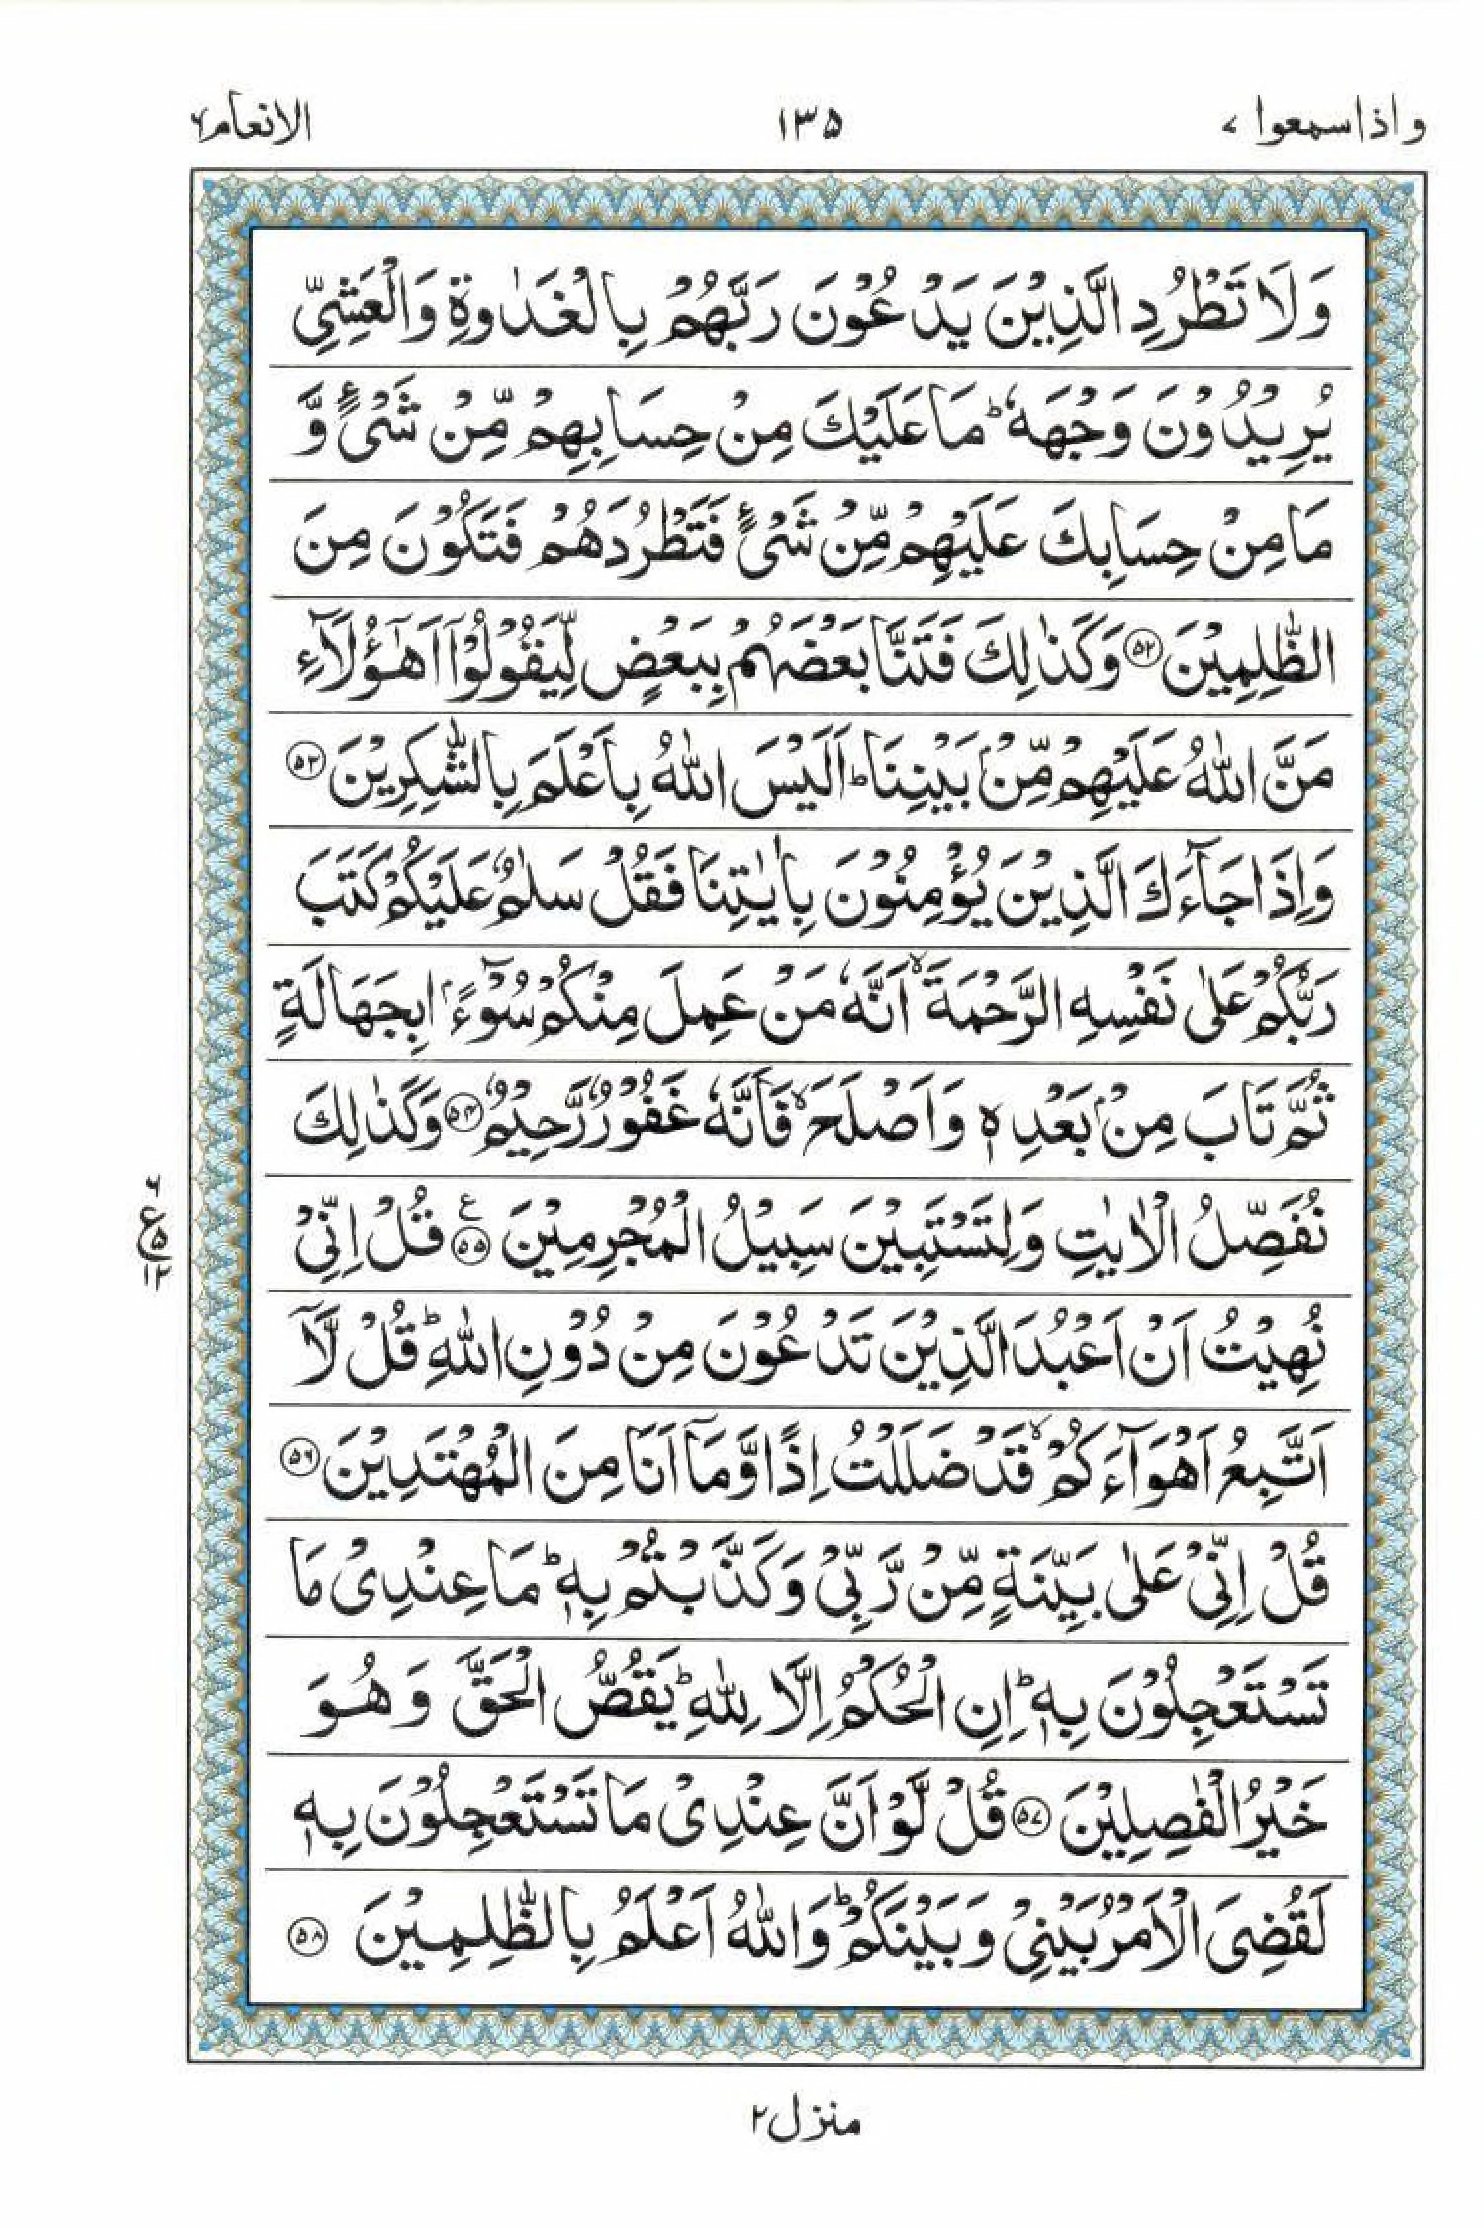 واذاسمعوا ۷
۱۳۵
الانعام ۶
وَلَا تَطْرُدِ الَّذِیْنَ یَدْعُوْنَ رَبَّهُمْ بِالْغَدٰوةِ وَالْعَشِیِّ
یُرِیْدُوْنَ وَجْهَهٗ ؕ مَا عَلَیْكَ مِنْ حِسَابِهِمْ مِّنْ شَیْءٍ وَّ
مَا مِنْ حِسَابِكَ عَلَیْهِمْ مِّنْ شَیْءٍ فَتَطْرُدَهُمْ فَتَكُوْنَ مِنَ
الظّٰلِمِیْنَ ۵۲ وَكَذٰلِكَ فَتَنَّا بَعْضَهُمْ بِبَعْضٍ لِّیَقُوْلُوْۤا اَهٰۤؤُلَآءِ
مَنَّ اللّٰهُ عَلَیْهِمْ مِّنْۢ بَیْنِنَا ؕ اَلَیْسَ اللّٰهُ بِاَعْلَمَ بِالشّٰكِرِیْنَ ۵۳
وَاِذَا جَآءَكَ الَّذِیْنَ یُؤْمِنُوْنَ بِاٰیٰتِنَا فَقُلْ سَلٰمٌ عَلَیْكُمْ كَتَبَ
رَبُّكُمْ عَلٰی نَفْسِهِ الرَّحْمَةَ ۙ اَنَّهٗ مَنْ عَمِلَ مِنْكُمْ سُوْٓءًۢا بِجَهَالَةٍ
ثُمَّ تَابَ مِنْۢ بَعْدِهٖ وَاَصْلَحَ ۙ فَاَنَّهٗ غَفُوْرٌ رَّحِیْمٌ ۵۴ وَكَذٰلِكَ
نُفَصِّلُ الْاٰیٰتِ وَلِتَسْتَبِیْنَ سَبِیْلُ الْمُجْرِمِیْنَ ۵۵ ع قُلْ اِنِّیْ
نُهِیْتُ اَنْ اَعْبُدَ الَّذِیْنَ تَدْعُوْنَ مِنْ دُوْنِ اللّٰهِ ؕ قُلْ لَّاۤ
اَتَّبِعُ اَهْوَآءَكُمْ ۙ قَدْ ضَلَلْتُ اِذًا وَّمَاۤ اَنَا مِنَ الْمُهْتَدِیْنَ ۵۶
قُلْ اِنِّیْ عَلٰی بَیِّنَةٍ مِّنْ رَّبِّیْ وَكَذَّبْتُمْ بِهٖ ؕ مَا عِنْدِیْ مَا
تَسْتَعْجِلُوْنَ بِهٖ ؕ اِنِ الْحُكْمُ اِلَّا لِلّٰهِ ؕ یَقُصُّ الْحَقَّ وَهُوَ
خَیْرُ الْفٰصِلِیْنَ ۵۷ قُلْ لَّوْ اَنَّ عِنْدِیْ مَا تَسْتَعْجِلُوْنَ بِهٖ
لَقُضِیَ الْاَمْرُ بَیْنِیْ وَبَیْنَكُمْ ؕ وَاللّٰهُ اَعْلَمُ بِالظّٰلِمِیْنَ ۵۸
ع ۵
۱۲
منزل ۲